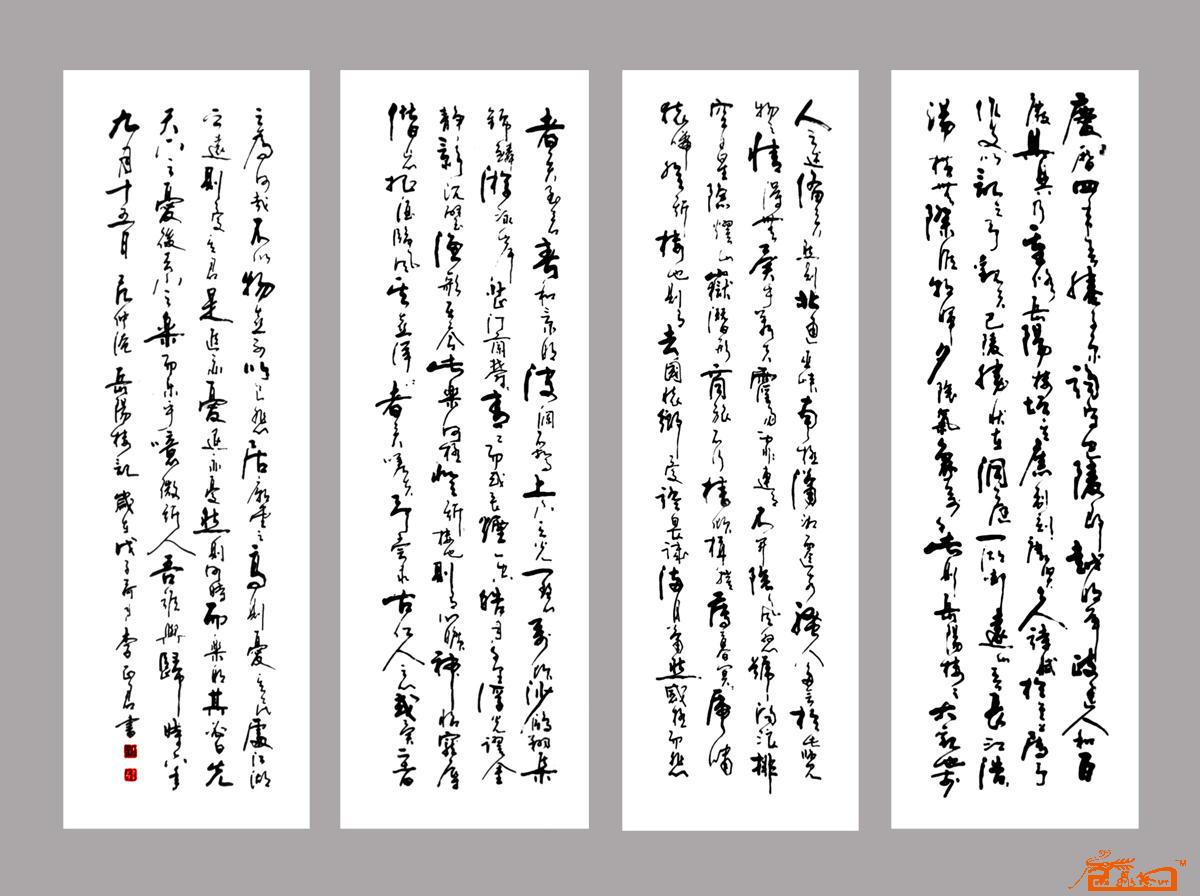 慶曆四年春滕子京謫守巴陵郡越明年政通人和百
廢具興乃重修岳陽樓增其舊制刻唐賢今人詩賦於其上屬予
作文以記之予觀夫巴陵勝狀在洞庭一湖銜遠山吞長江浩浩
湯湯橫無際涯朝暉夕陰氣象萬千此則岳陽樓之大觀也前
人之述備矣然則北通巫峽南極瀟湘遷客騷人多會於此覽
物之情得無異乎若夫霪雨霏霏連月不開陰風怒號濁浪排
空日星隱耀山嶽潛形商旅不行檣傾楫摧薄暮冥冥虎嘯
猿啼登斯樓也則有去國懷鄉憂讒畏譏滿目蕭然感極而悲
者矣至若春和景明波瀾不驚上下天光一碧萬頃沙鷗翔集
錦鱗游泳岸芷汀蘭鬱鬱青青而或長煙一空皓月千里浮光躍金
靜影沉璧漁歌互答此樂何極登斯樓也則有心曠神怡寵辱
偕忘把酒臨風其喜洋洋者矣嗟夫予嘗求古仁人之心或異二者
之為何哉不以物喜不以己悲居廟堂之高則憂其民處江湖
之遠則憂其君是進亦憂退亦憂然則何時而樂耶其必曰先
天下之憂後天下之樂而樂乎噫微斯人吾誰與歸時六年
九月十五日 范仲淹岳陽樓記 歲在戊子 李正君書